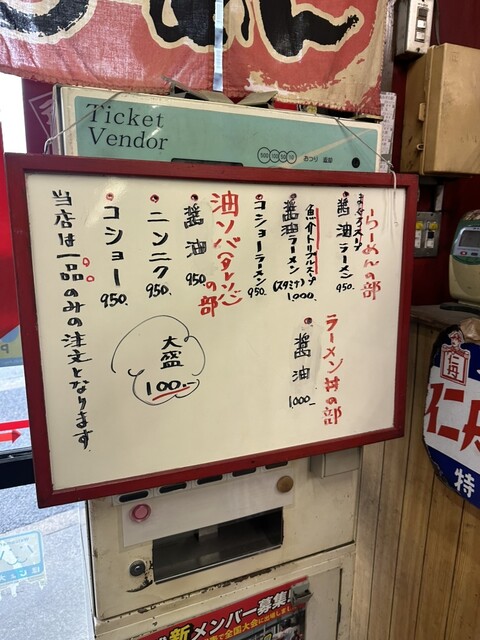 Ticket
Vendor
500 100 50 10
おつり 返却
らーめんの部
醤油ラーメン 950.
魚介トリプルスープ
醤油ラーメン (スタミナ) 1,000.
コショーラーメン 950.
油ソバ(タレソバ)の部
醤油 950.
ニンニク 950.
コショー 950.
当店は一品のみの注文となります.
ラーメン丼の部
醤油 1,000-
大盛
100-
仁丹
仁丹
特
新メンバー募集!